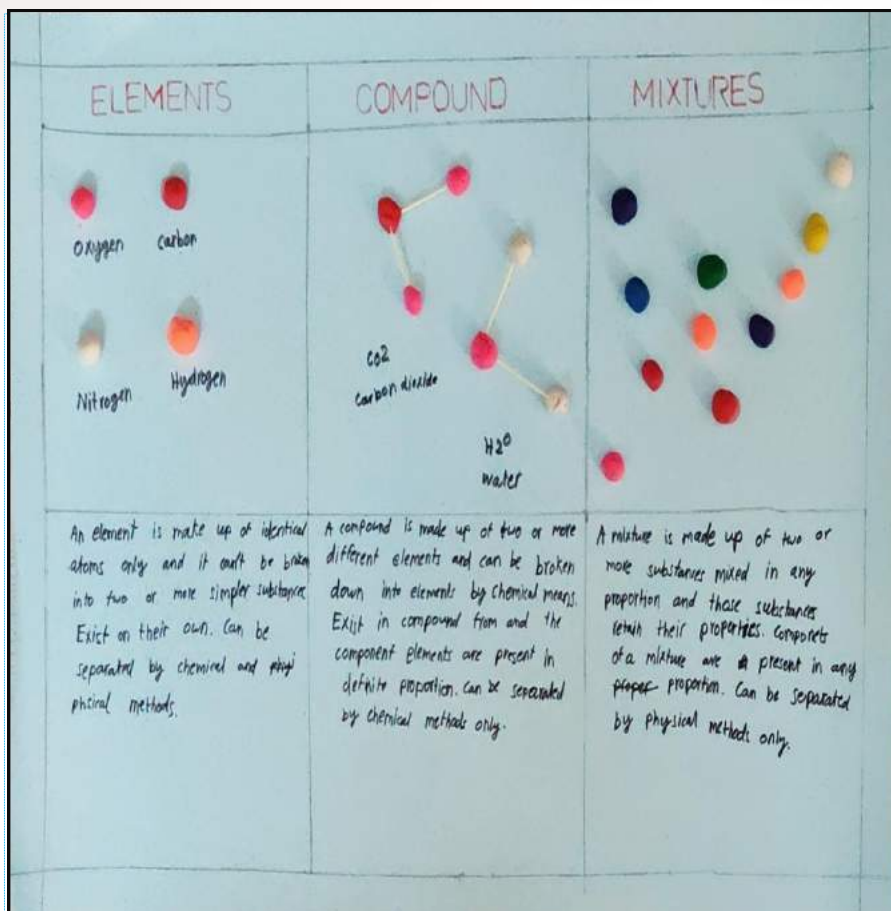 ELEMENTS
COMPOUND
MIXTURES
Oxygen
carbon
Nitrogen
Hydrogen
CO2
carbon dioxide
H2O
water
An element is make up of identical
atoms only and it can't be broken
into two or more simpler substances
Exist on their own. Can be
separated by chemical and phyi
phsiral methods.
A compound is made up of two or more
different elements and can be broken
down into elements by chemical means.
Exist in compound from and the
component elements are present in
definite proportion. can be separated
by chemical methods only.
A mixture is made up of two or
more substances mixed in any
proportion and those substances
retain their properties. Componets
of a mixture are present in any
proper proportion. Can be separated
by physical methods only.